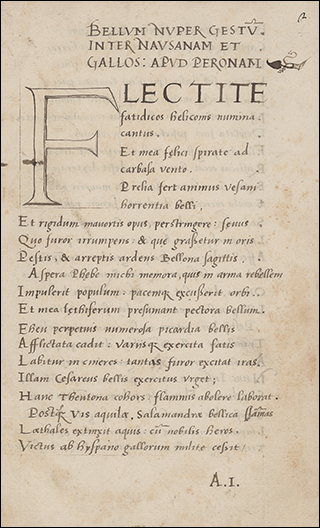 2
BELLUM NUPER GESTŪ.
INTER NAUSANAM ET
GALLOS: APUD PERONAM
FLECTITE
fatidicos heliconis numina
cantus.
Et mea felici spirate ad
carbasa vento.
Prelia fert animus vesani
horrentia belli.
Et rigidum mavortis opus perstringere: sevus
Quo furor irrumpens: & quę graßetur in oris
Pestis, & arreptis ardens Bellona sagittis.
Aspera Phębe michi memora, quis in arma rebellem
Impulerit populum: pacemq; excußerit orbi.
Et mea lethiferum presumant pectora bellum.
Eheu perpetuis numerosa picardia bellis
Afflictata cadit: variisq; exercita fatis
Labitur in cineres: tantas furor excitat iras.
Illam Cesareus bellis exercitus urget;
Hanc Theutona cohors: flammis abolere laborat.
Postq̄ vis aquilæ, Salamandræ bellica flāmas
Læthales extinxit aquis: cū nobilis heros.
Victus ab hyspano gallorum milite ceßit
A.1.